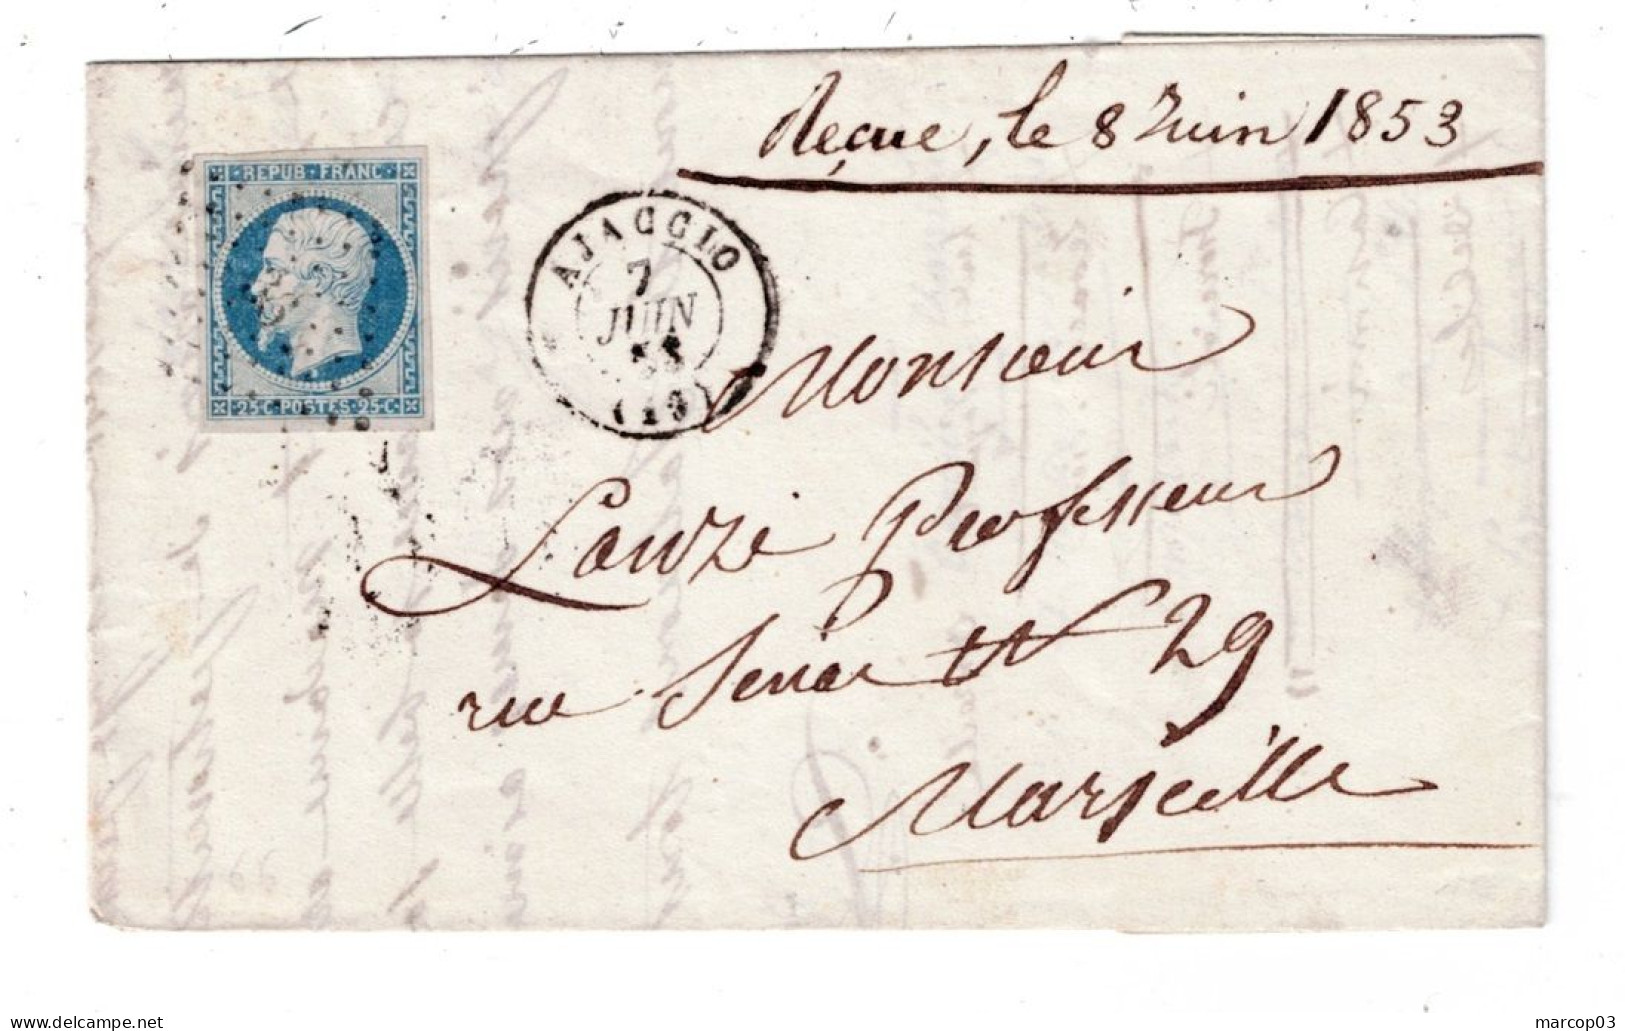 Reçue, le 8 Juin 1853
REPUB·FRANC
25·C·POSTES·25·C
AJACCIO
7
JUIN
53
(19)
Monsieur
Lauzé Professeur
rue N° 29
Marseille
99
marcop03